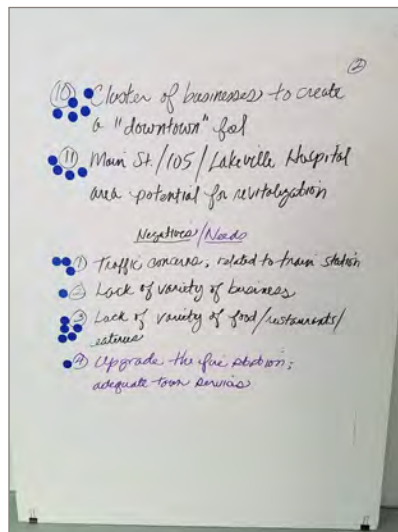 ②
⑩ Cluster of businesses to create
a "downtown" feel
⑪ Main St./105/Lakeville Hospital
area potential for revitalization
Negatives/Needs
① Traffic concerns, related to train station
② Lack of variety of business
③ Lack of variety of food/restaurants/
eateries
④ Upgrade the fire station;
adequate town services